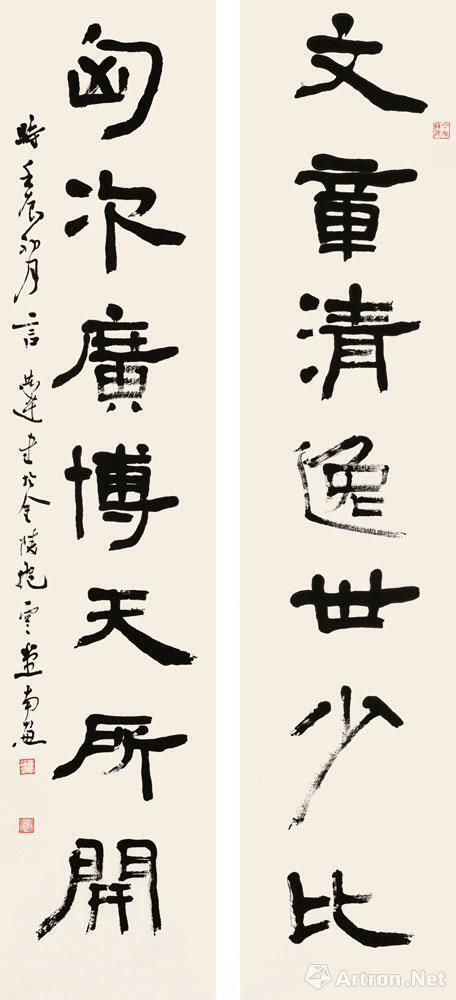 文章清逸世少比
匈次廣博天所開
時壬辰初月言恭達書於金陵抱雲堂南窗
Artron.Net